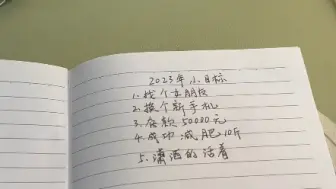 2023年小目标
1.找个女朋友
2.换个新手机
3.存款50000元
4.成功减肥10斤
5.潇洒的活着